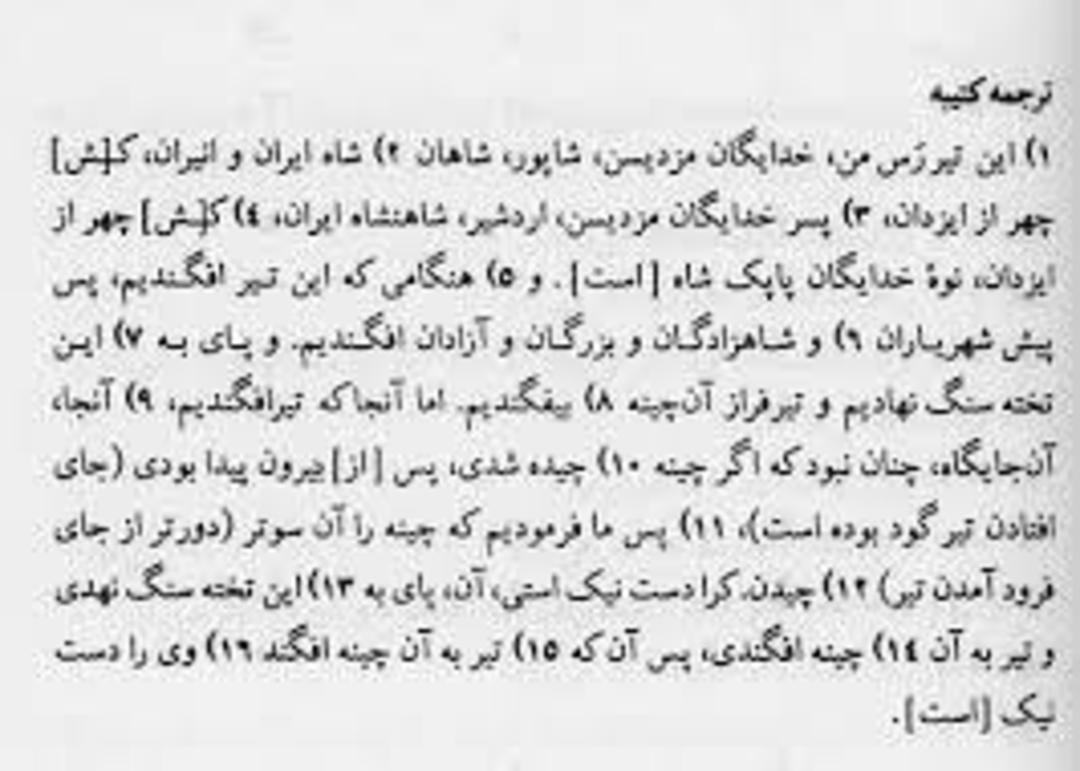 ترجمه کتیبه
۱) این تیررَس من، خدایگان مزدیسن، شاپور، شاهان ۲) شاه ایران و انیران، کـ[ـش]
چهر از ایزدان، ۳) پسر خدایگان مزدیسن، اردشیر، شاهنشاه ایران، ٤) کـ[ـش] چهر از
ایزدان، نوهٔ خدایگان پاپک شاه [است]. و ۵) هنگامی که این تیر افگندیم، پس
پیش شهریاران ۹) و شاهزادگان و بزرگان و آزادان افگندیم. و پای به ۷) این
تخته سنگ نهادیم و تیرفراز آن‌چینه ۸) بیفگندیم. اما آنجا که تیرافگندیم، ۹) آنجا،
آن‌جایگاه، چنان نبود که اگر چینه ۱۰) چیده شدی، پس [از] بیرون پیدا بودی (جای
افتادن تیر گود بوده است)، ۱۱) پس ما فرمودیم که چینه را آن سوتر (دورتر از جای
فرود آمدن تیر) ۱۲) چیدن. کرا دست نیک استی، آن، پای به ۱۳) این تخته سنگ نهدی
و تیر به آن ۱٤) چینه افگندی، پس آن که ۱۵) تیر به آن چینه افگند ۱٦) وی را دست
نیک [است].